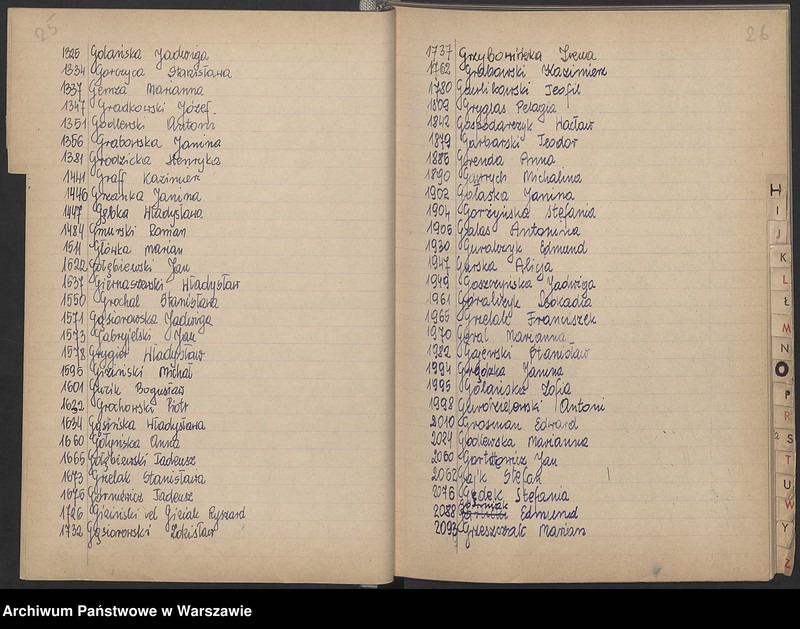 25
1325 Golańska Jadwiga
1334 Gorczyca Stanisława
1337 Gemza Marianna
1347 Gradkowski Józef
1351 Godlewski Antoni
1356 Graborska Janina
1381 Grodzicka Henryka
1441 Graff Kazimierz
1446 Grzanka Janina
1447 Gębka Władysława
1484 Gmurski Roman
1511 Główka Marian
1522 Gołębiewski Jan
1537 Giernaszewski Władysław
1550 Grochal Stanisława
1571 Gąsiorowska Jadwiga
1573 Gabryelski Jan
1578 Grygier Władysław
1595 Giziński Michał
1601 Guzik Bogusław
1622 Grochowski Piotr
1634 Gąsińska Władysława
1660 Gołyńska Anna
1665 Gołębiewski Tadeusz
1673 Grzelak Stanisława
1675 Goryniewicz Tadeusz
1726 Giziński vel Giziak Ryszard
1732 Gąsiorowski Zdzisław
26
1737 Grzybowińska Irena
1762 Grabowski Kazimierz
1780 Gawlikowski Teofil
1809 Gryglas Pelagia
1842 Gospodarczyk Wacław
1879 Garbarski Teodor
1885 Gerenda Anna
1890 Gawrych Michalina
1902 Gołaska Janina
1904 Gorzyńska Stefania
1905 Galas Antonina
1930 Guralczyk Edmund
1947 Gurska Alicja
1949 Goszczyńska Jadwiga
1961 Góralczyk Leokadia
1965 Grzelak Franciszek
1970 Góral Marianna
1982 Gajewski Stanisław
1994 Janina
1995 Golańska Zofia
1998 Antoni
2010 Grosman Edward
2024 Godlewska Marianna
2060 Jan
2062 Gajk Stefan
2076 Gędek Stefania
2082 Edmund
2093 Grzeszczak Marian
H
I
J
K
L
Ł
M
N
O
P
R
S
T
U
W
Y
Z
Archiwum Państwowe w Warszawie